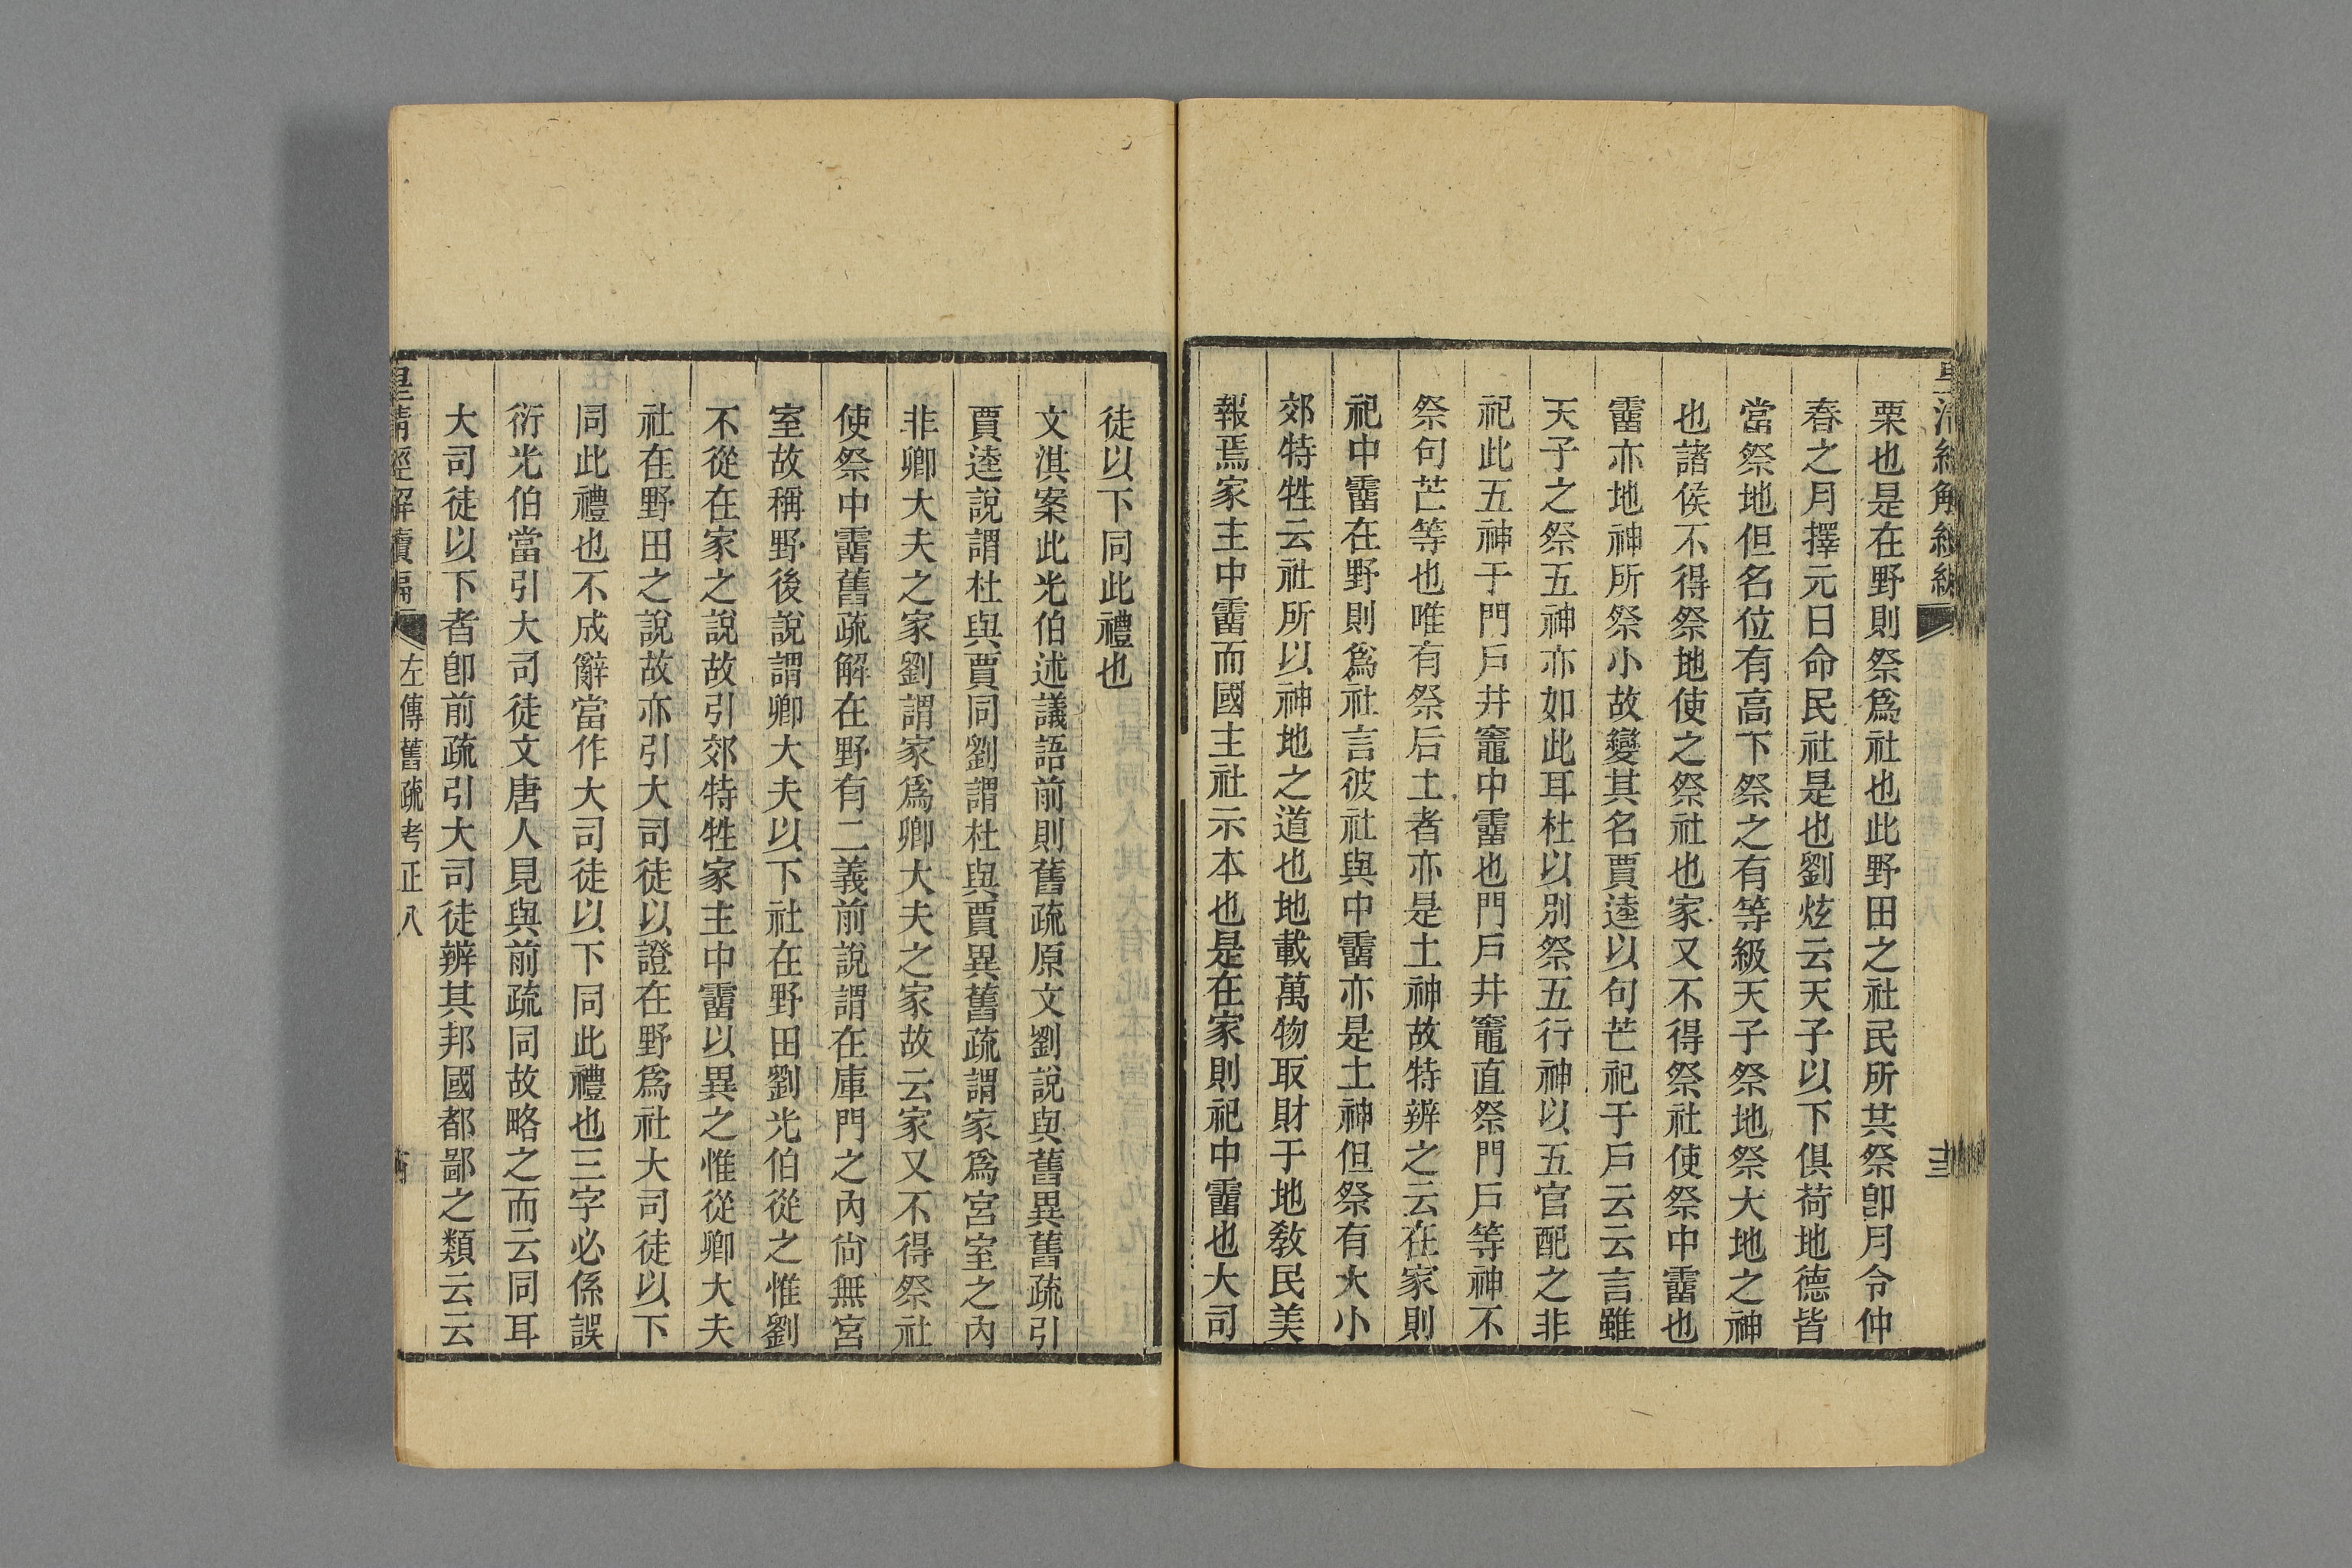 栗也是在野則祭爲社也此野田之社民所其祭卽月令仲
春之月擇元日命民社是也劉炫云天子以下俱荷地德皆
當祭地但名位有高下祭之有等級天子祭地祭大地之神
也諸侯不得祭地使之祭社也家又不得祭社使祭中霤也
霤亦地神所祭小故變其名賈逵以句芒祀于戶云云言雖
天子之祭五神亦如此耳杜以別祭五行神以五官配之非
祀此五神于門戶井竈中霤也門戶井竈直祭門戶等神不
祭句芒等也唯有祭后土者亦是土神故特辨之云在家則
祀中霤在野則爲社言彼社與中霤亦是土神但祭有大小
郊特牲云社所以神地之道也地載萬物取財于地敎民美
報焉家主中霤而國主社示本也是在家則祀中霤也大司
徒以下同此禮也
文淇案此光伯述議語前則舊疏原文劉說與舊異舊疏引
賈逵說謂杜與賈同劉謂杜與賈異舊疏謂家爲宮室之內
非卿大夫之家劉謂家爲卿大夫之家故云家又不得祭社
使祭中霤舊疏解在野有二義前說謂在庫門之內尙無宮
室故稱野後說謂卿大夫以下社在野田劉光伯從之惟劉
不從在家之說故引郊特牲家主中霤以異之惟從卿大夫
社在野田之說故亦引大司徒以證在野爲社大司徒以下
同此禮也不成辭當作大司徒以下同此禮也三字必係誤
衍光伯當引大司徒文唐人見與前疏同故略之而云同耳
大司徒以下者卽前疏引大司徒辨其邦國都鄙之類云云
皇淸經解續編
左傳舊疏考正八